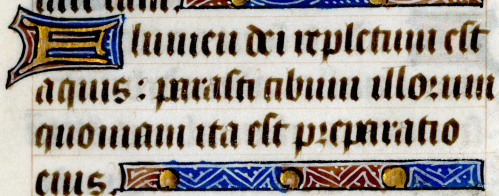 Flumen dei repletum est
aquis: parasti cibum illorum
quoniam ita est preparatio
eius.